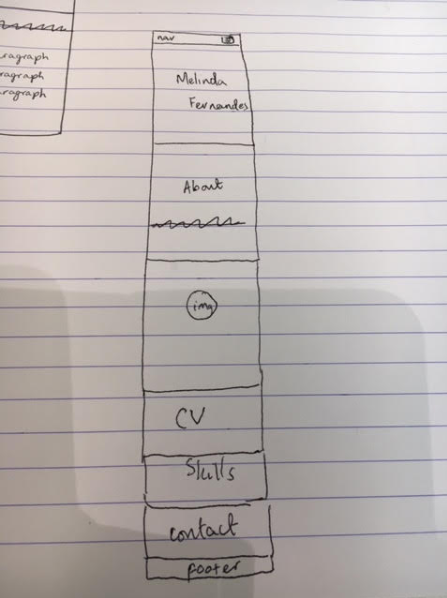 aragraph
aragraph
aragraph
nav
Melinda
Fernandes
About
img
CV
Skills
contact
footer